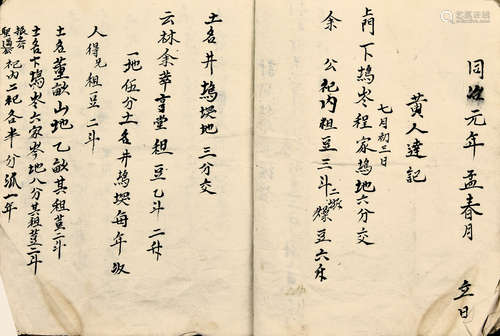 同治元年孟春月 立日
黄人達記
七月初三日
上門下塢岺程家塢地六分交
余 公祀内租豆三斗
豆六升
土名井塢塝地 三分交
云林余萃亨堂租豆乙斗二升
一地伍分土名井塢塝每年收
人得兄租豆二斗
土名董畝山地乙畝其租荳二斗
土名下塢岺六家岺地八分其租荳二斗
祀内二祀各半分派一年